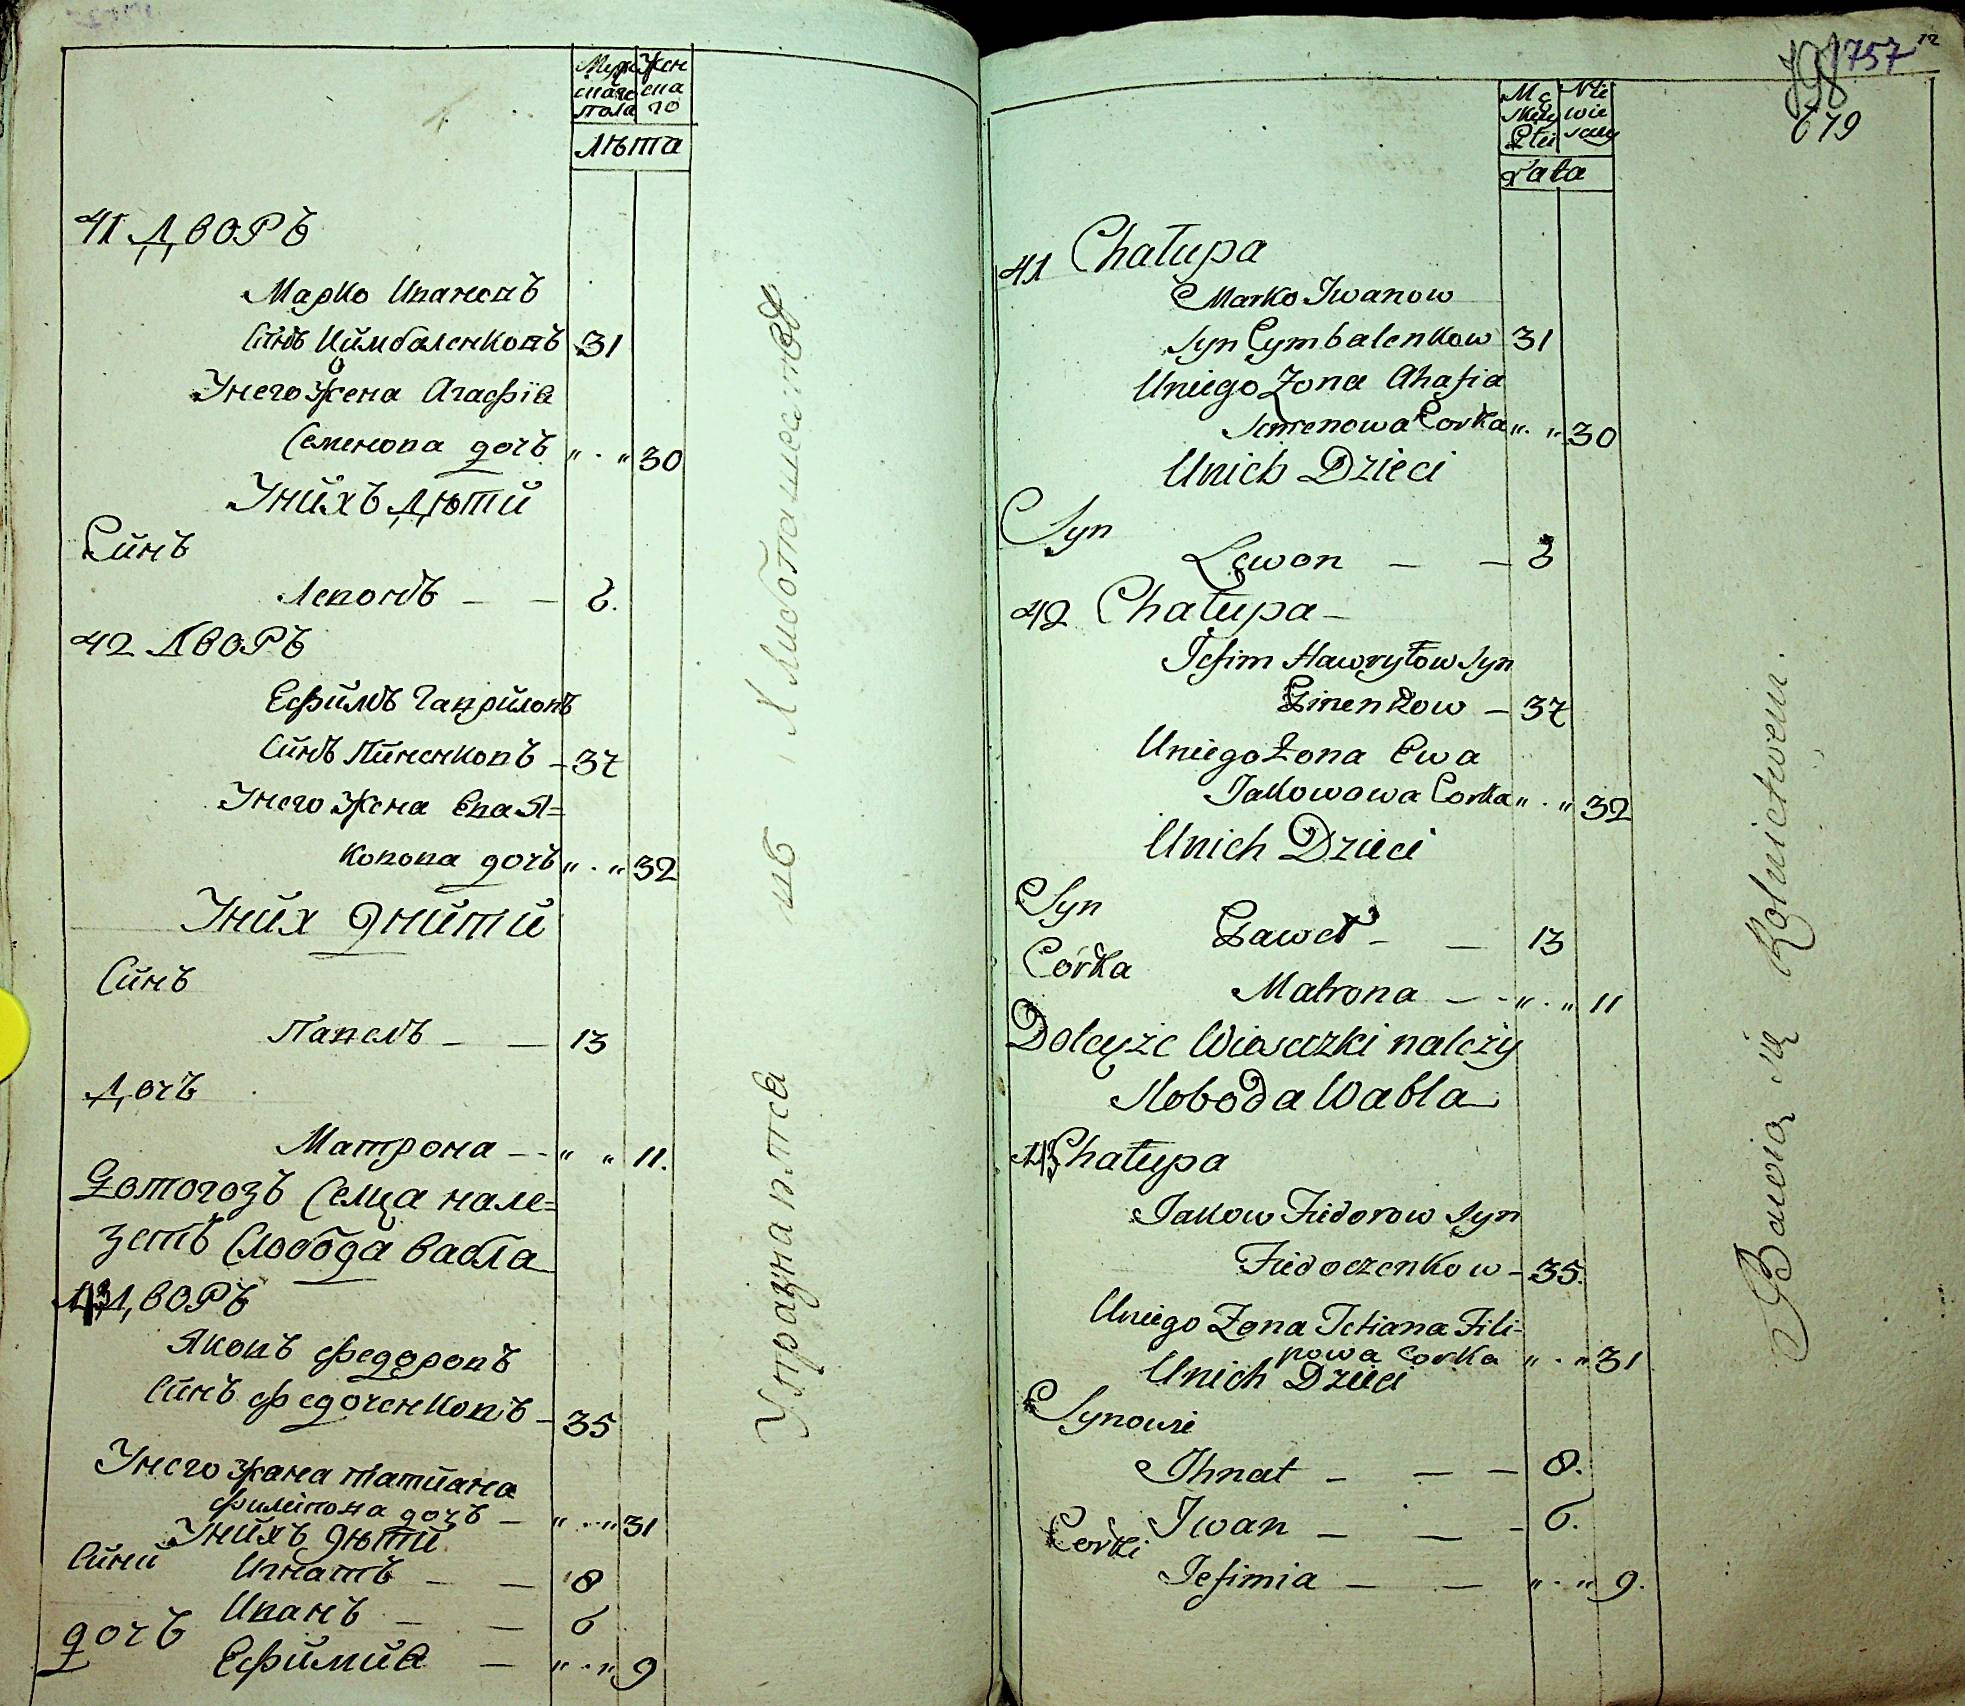 Мужскаго пола
Женскаго
Лѣта
41 Дворъ
Марко Ивановъ
Синъ Цимбаленковъ 31
Унего Жена Агафія
Семенова дочъ „ · „ 30
Унихъ Дѣти
Синъ
Левонъ — — 6.
42 Дворъ
Ефимъ Гавриловъ
Синъ Пиненковъ — 37
Унего Жена Ева Я=
ковова дочъ „ · „ 32
Уних дѣити
Синъ
Павелъ — — 13
Дочъ
Матрона — - „ „ 11.
Дотогозъ Селца нале=
зетъ Слобода Вабла
43 Дворъ
Яковъ Федоровъ
Синъ Федоченковъ — 35
Унего жена татиана
филипова дочъ — „ · „ 31
Унихъ дѣти
Сини Игнатъ — — 8
Иванъ — — 6
дочъ Ефимиа — „ · „ 9
Упражнаются
757 12
198
679
Męskiey Płci
Niewiesciey
Lata
41 Chałupa
Marko Iwanow
Syn Cymbalenkow 31
Uniego Zona Ahafia
Semenowa Corka „ · „ 30
Unich Dzieci
Syn
Lewon — — 6
42 Chałupa —
Jefim Hawryłow Syn
Pinenkow — 37
Uniego Zona Ewa
Jakowowa Corka „ · „ 32
Unich Dzieci
Syn
Paweł — — 13
Córka
Matrona — - „ · „ 11
Doleyże Wioseczki należy
Słoboda Wabla
43 Chałupa
Jakow Fiedorow Syn
Fiedoczenkow — 35.
Uniego Zona Tetiana Fili-
powa Corka „ · „ 31
Unich Dzieci
Synowie
Ihnat — — — 8.
Iwan — — - 6.
Corki
Jefimia — — „ · „ 9.
Bawią się Rolnictwem.